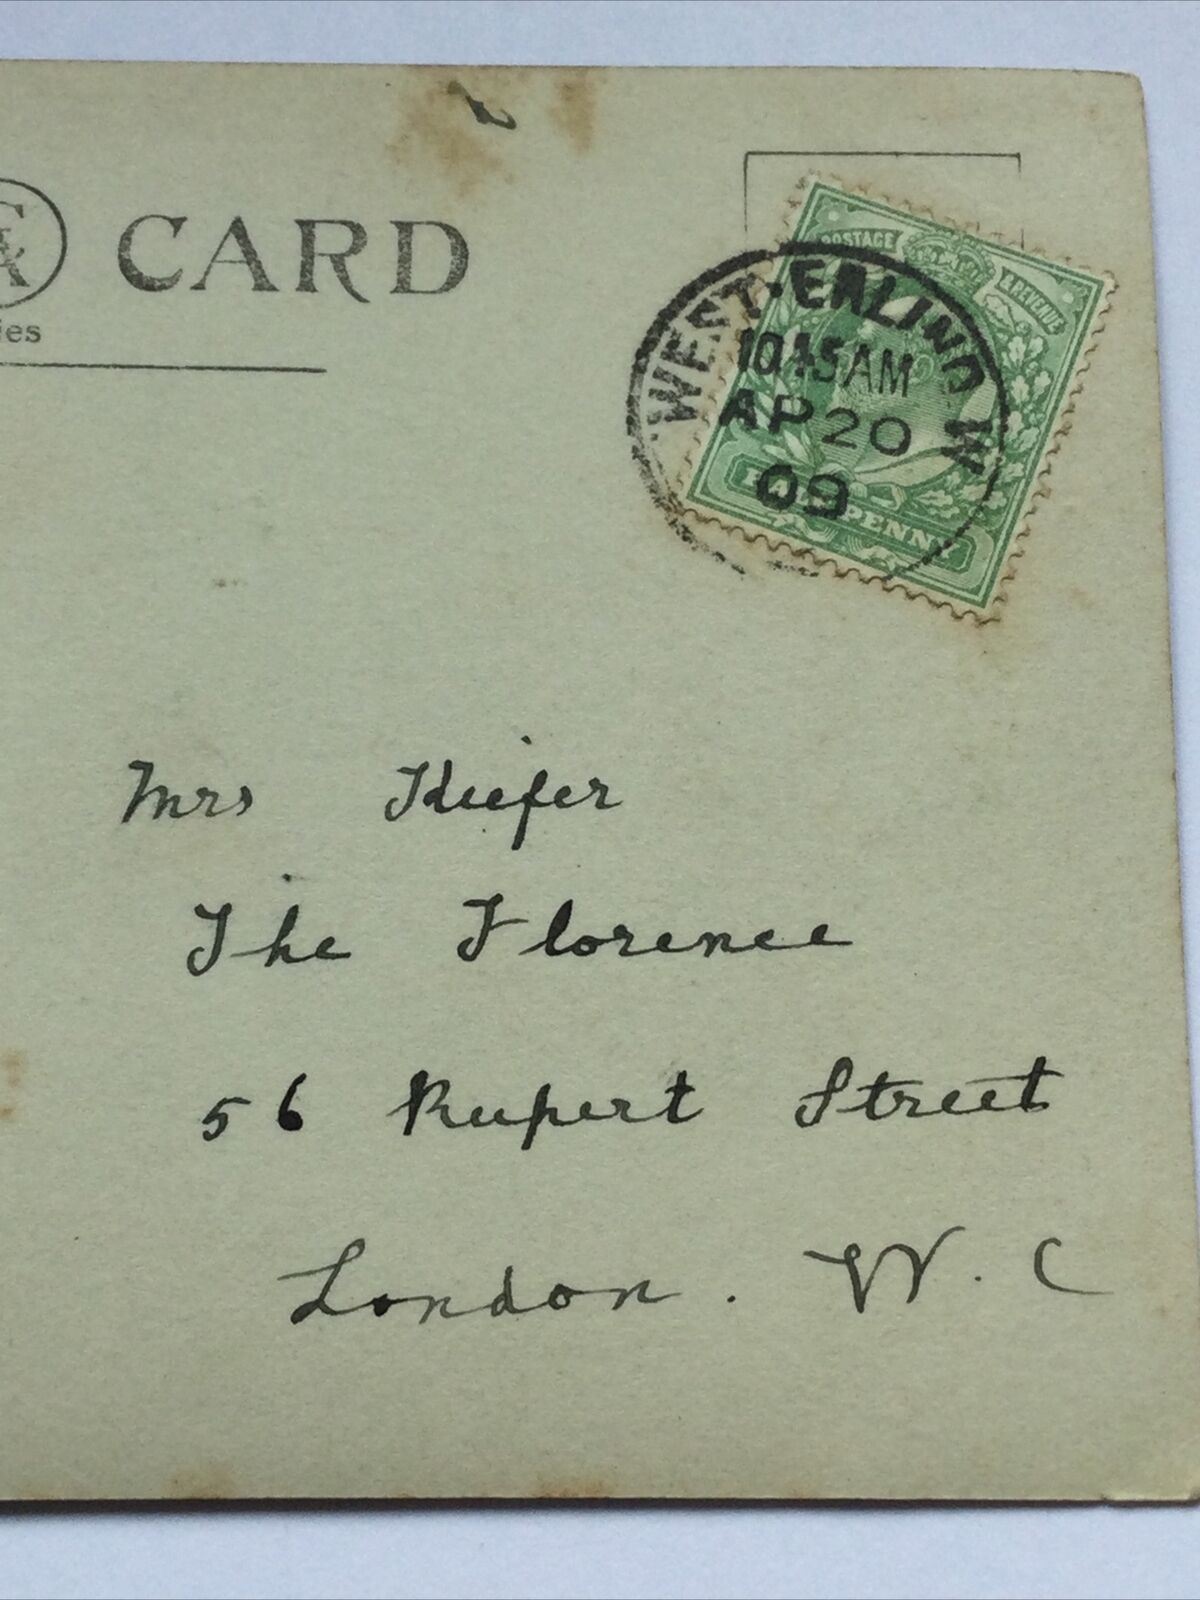 CARD
ies
POSTAGE & REVENUE
WEST·EALING W
10.45AM
AP 20
09
HALFPENNY
Mrs Kiefer
The Florence
56 Rupert Street
London. W.C